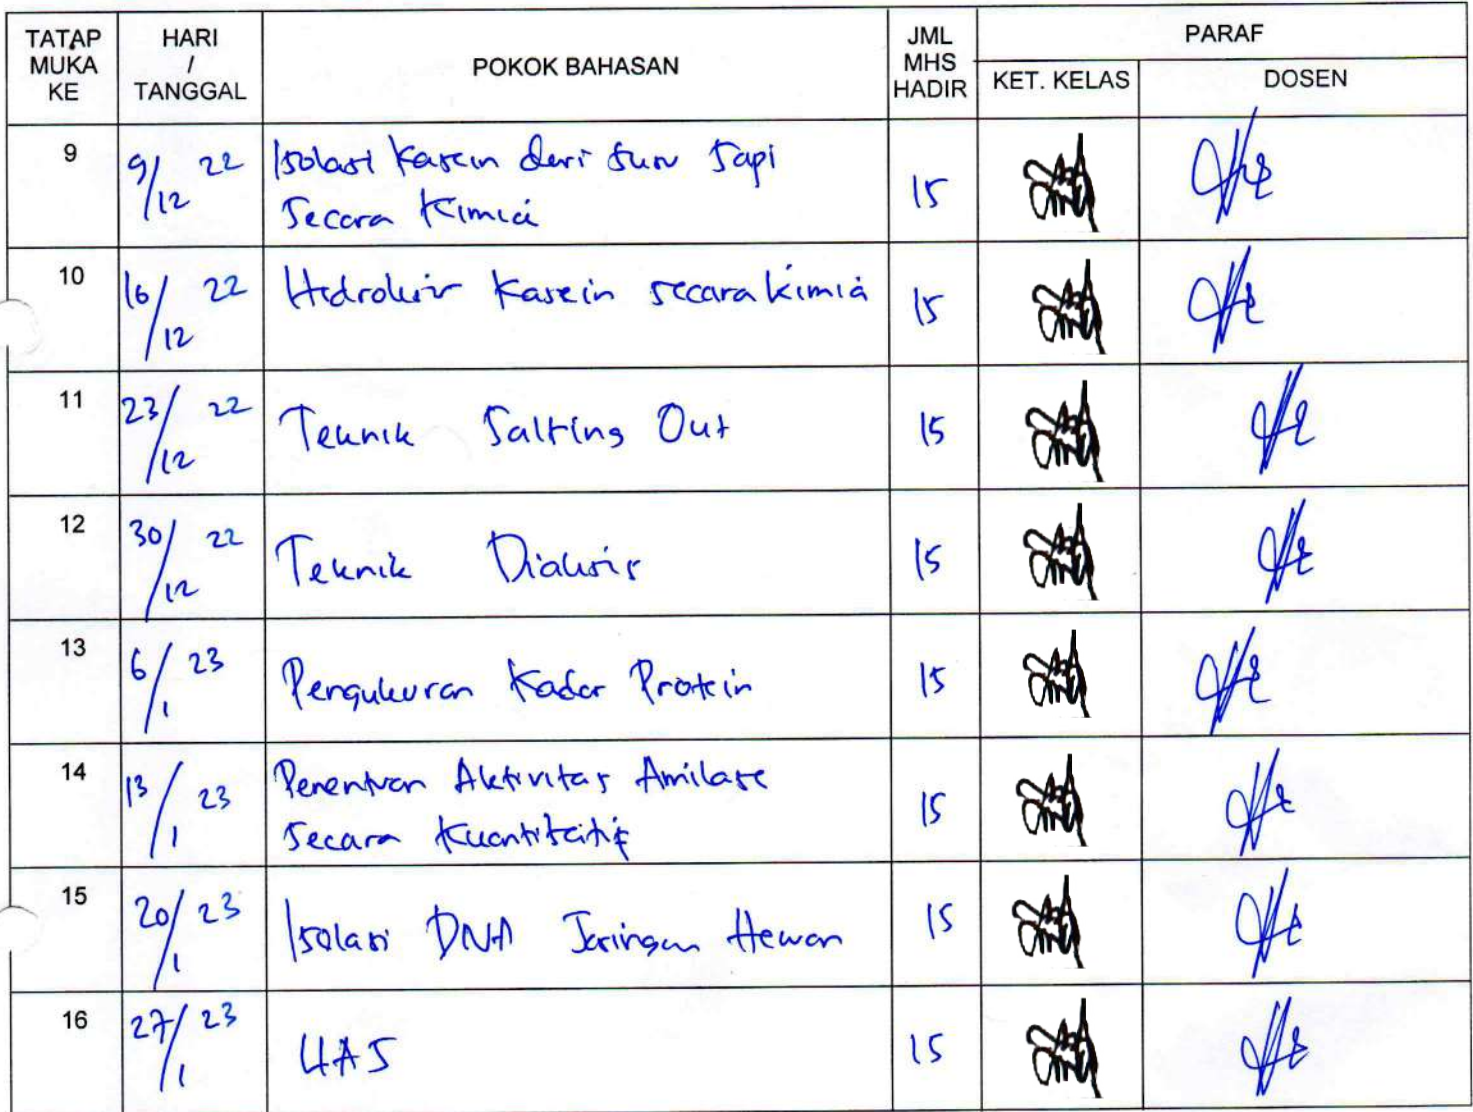 TATAP MUKA KE HARI / TANGGAL POKOK BAHASAN JML MHS HADIR PARAF
KET. KELAS DOSEN
9 9/12 22 Isolasi Kasein dari susu sapi
secara Kimia 15
10 16/12 22 Hidrolisis Kasein secara kimia 15
11 23/12 22 Teknik Salting Out 15
12 30/12 22 Teknik Dialisis 15
13 6/1 23 Pengukuran Kadar Protein 15
14 13/1 23 Penentuan Aktivitas Amilase
secara Kuantitatif 15
15 20/1 23 Isolasi DNA Jaringan Hewan 15
16 27/1 23 UAS 15